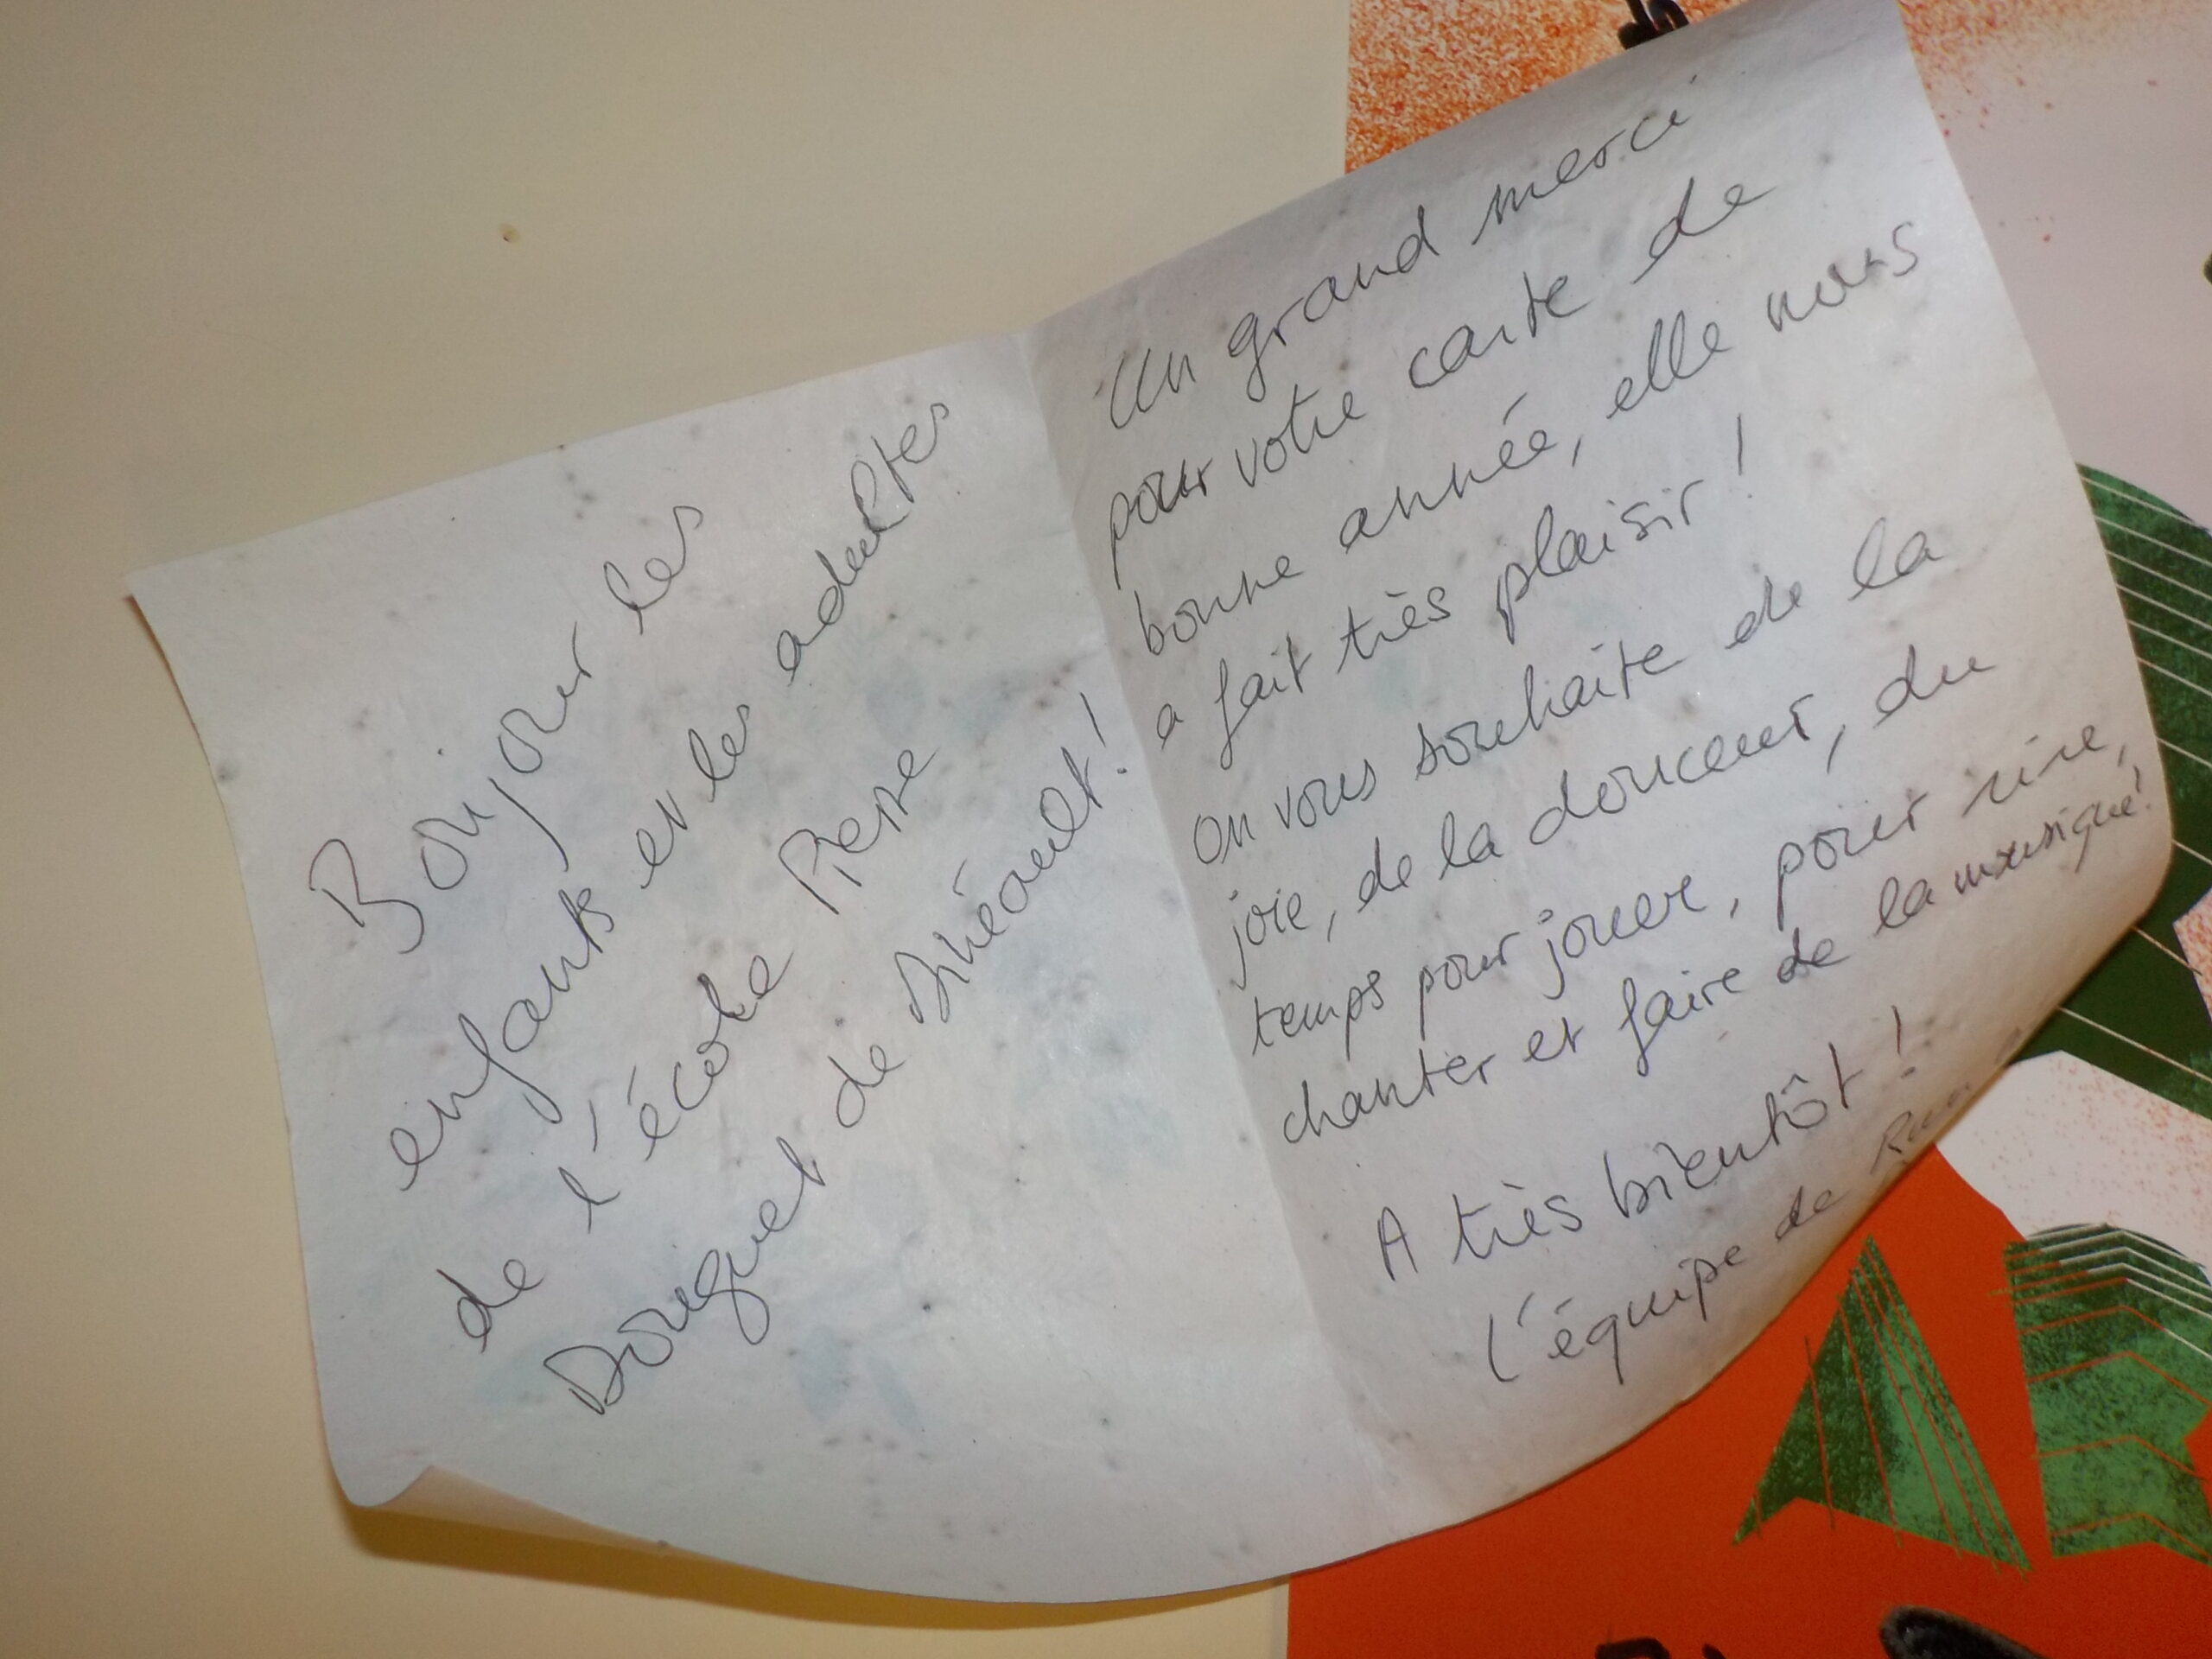 Bonjour les
enfants et les adultes
de l'école Pierre
Douguet de Dinéault!
Un grand merci
pour votre carte de
bonne année, elle nous
a fait très plaisir!
On vous souhaite de la
joie, de la douceur, du
temps pour jouer, pour rire,
chanter et faire de la musique!
A très bientôt!
l'équipe de